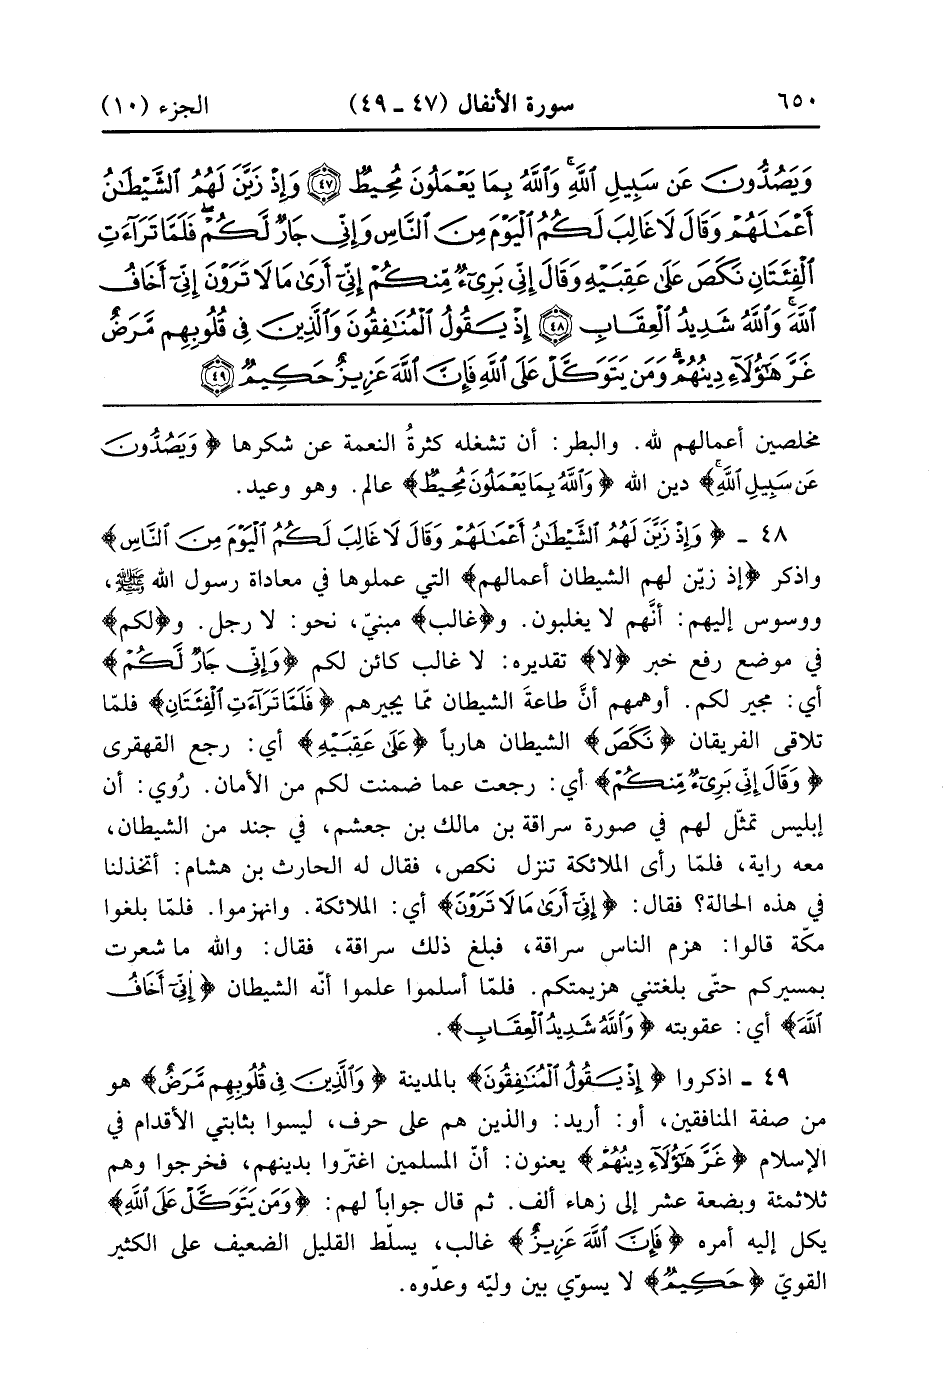 ٦٥٠ سورة الأنفال (٤٧ ـ ٤٩) الجزء (١٠)
وَيَصُدُّونَ عَن سَبِيلِ ٱللَّهِ ۚ وَٱللَّهُ بِمَا يَعْمَلُونَ مُحِيطٌ ﴿٤٧﴾ وَإِذْ زَيَّنَ لَهُمُ ٱلشَّيْطَٰنُ
أَعْمَٰلَهُمْ وَقَالَ لَا غَالِبَ لَكُمُ ٱلْيَوْمَ مِنَ ٱلنَّاسِ وَإِنِّى جَارٌ لَّكُمْ ۖ فَلَمَّا تَرَآءَتِ
ٱلْفِئَتَانِ نَكَصَ عَلَىٰ عَقِبَيْهِ وَقَالَ إِنِّى بَرِىٓءٌ مِّنكُمْ إِنِّىٓ أَرَىٰ مَا لَا تَرَوْنَ إِنِّىٓ أَخَافُ
ٱللَّهَ ۚ وَٱللَّهُ شَدِيدُ ٱلْعِقَابِ ﴿٤٨﴾ إِذْ يَقُولُ ٱلْمُنَٰفِقُونَ وَٱلَّذِينَ فِى قُلُوبِهِم مَّرَضٌ
غَرَّ هَٰٓؤُلَآءِ دِينُهُمْ ۗ وَمَن يَتَوَكَّلْ عَلَى ٱللَّهِ فَإِنَّ ٱللَّهَ عَزِيزٌ حَكِيمٌ ﴿٤٩﴾
مخلصين أعمالهم لله. والبطر: أن تشغله كثرةُ النعمة عن شكرها ﴿وَيَصُدُّونَ
عَن سَبِيلِ ٱللَّهِ ۚ﴾ دين الله ﴿وَٱللَّهُ بِمَا يَعْمَلُونَ مُحِيطٌ﴾ عالم. وهو وعيد.
٤٨ ـ ﴿وَإِذْ زَيَّنَ لَهُمُ ٱلشَّيْطَٰنُ أَعْمَٰلَهُمْ وَقَالَ لَا غَالِبَ لَكُمُ ٱلْيَوْمَ مِنَ ٱلنَّاسِ﴾
واذكر ﴿إذ زيّن لهم الشيطان أعمالهم﴾ التي عملوها في معاداة رسول الله ﷺ،
ووسوس إليهم: أنَّهم لا يغلبون. و﴿غالب﴾ مبنيّ، نحو: لا رجل. و﴿لكم﴾
في موضع رفع خبر ﴿لا﴾ تقديره: لا غالب كائن لكم ﴿وَإِنِّى جَارٌ لَّكُمْ﴾
أي: مجير لكم. أوهمهم أنَّ طاعةَ الشيطان ممّا يجيرهم ﴿فَلَمَّا تَرَآءَتِ ٱلْفِئَتَانِ﴾ فلمّا
تلاقى الفريقان ﴿نَكَصَ﴾ الشيطان هارباً ﴿عَلَىٰ عَقِبَيْهِ﴾ أي: رجع القهقرى
﴿وَقَالَ إِنِّى بَرِىٓءٌ مِّنكُمْ﴾ أي: رجعت عما ضمنت لكم من الأمان. رُوي: أن
إبليس تمثّل لهم في صورة سراقة بن مالك بن جعشم، في جند من الشيطان،
معه راية، فلمّا رأى الملائكة تنزل نكص، فقال له الحارث بن هشام: أتخذلنا
في هذه الحالة؟ فقال: ﴿إِنِّىٓ أَرَىٰ مَا لَا تَرَوْنَ﴾ أي: الملائكة. وانهزموا. فلمّا بلغوا
مكّة قالوا: هزم الناس سراقة، فبلغ ذلك سراقة، فقال: والله ما شعرت
بمسيركم حتّى بلغتني هزيمتكم. فلمّا أسلموا علموا أنّه الشيطان ﴿إِنِّىٓ أَخَافُ
ٱللَّهَ﴾ أي: عقوبته ﴿وَٱللَّهُ شَدِيدُ ٱلْعِقَابِ﴾.
٤٩ ـ اذكروا ﴿إِذْ يَقُولُ ٱلْمُنَٰفِقُونَ﴾ بالمدينة ﴿وَٱلَّذِينَ فِى قُلُوبِهِم مَّرَضٌ﴾ هو
من صفة المنافقين، أو: أريد: والذين هم على حرف، ليسوا بثابتي الأقدام في
الإسلام ﴿غَرَّ هَٰٓؤُلَآءِ دِينُهُمْ﴾ يعنون: أنّ المسلمين اغترّوا بدينهم، فخرجوا وهم
ثلاثمئة وبضعة عشر إلى زهاء ألف. ثم قال جواباً لهم: ﴿وَمَن يَتَوَكَّلْ عَلَى ٱللَّهِ﴾
يكل إليه أمره ﴿فَإِنَّ ٱللَّهَ عَزِيزٌ﴾ غالب، يسلّط القليل الضعيف على الكثير
القويّ ﴿حَكِيمٌ﴾ لا يسوّي بين وليّه وعدّوه.